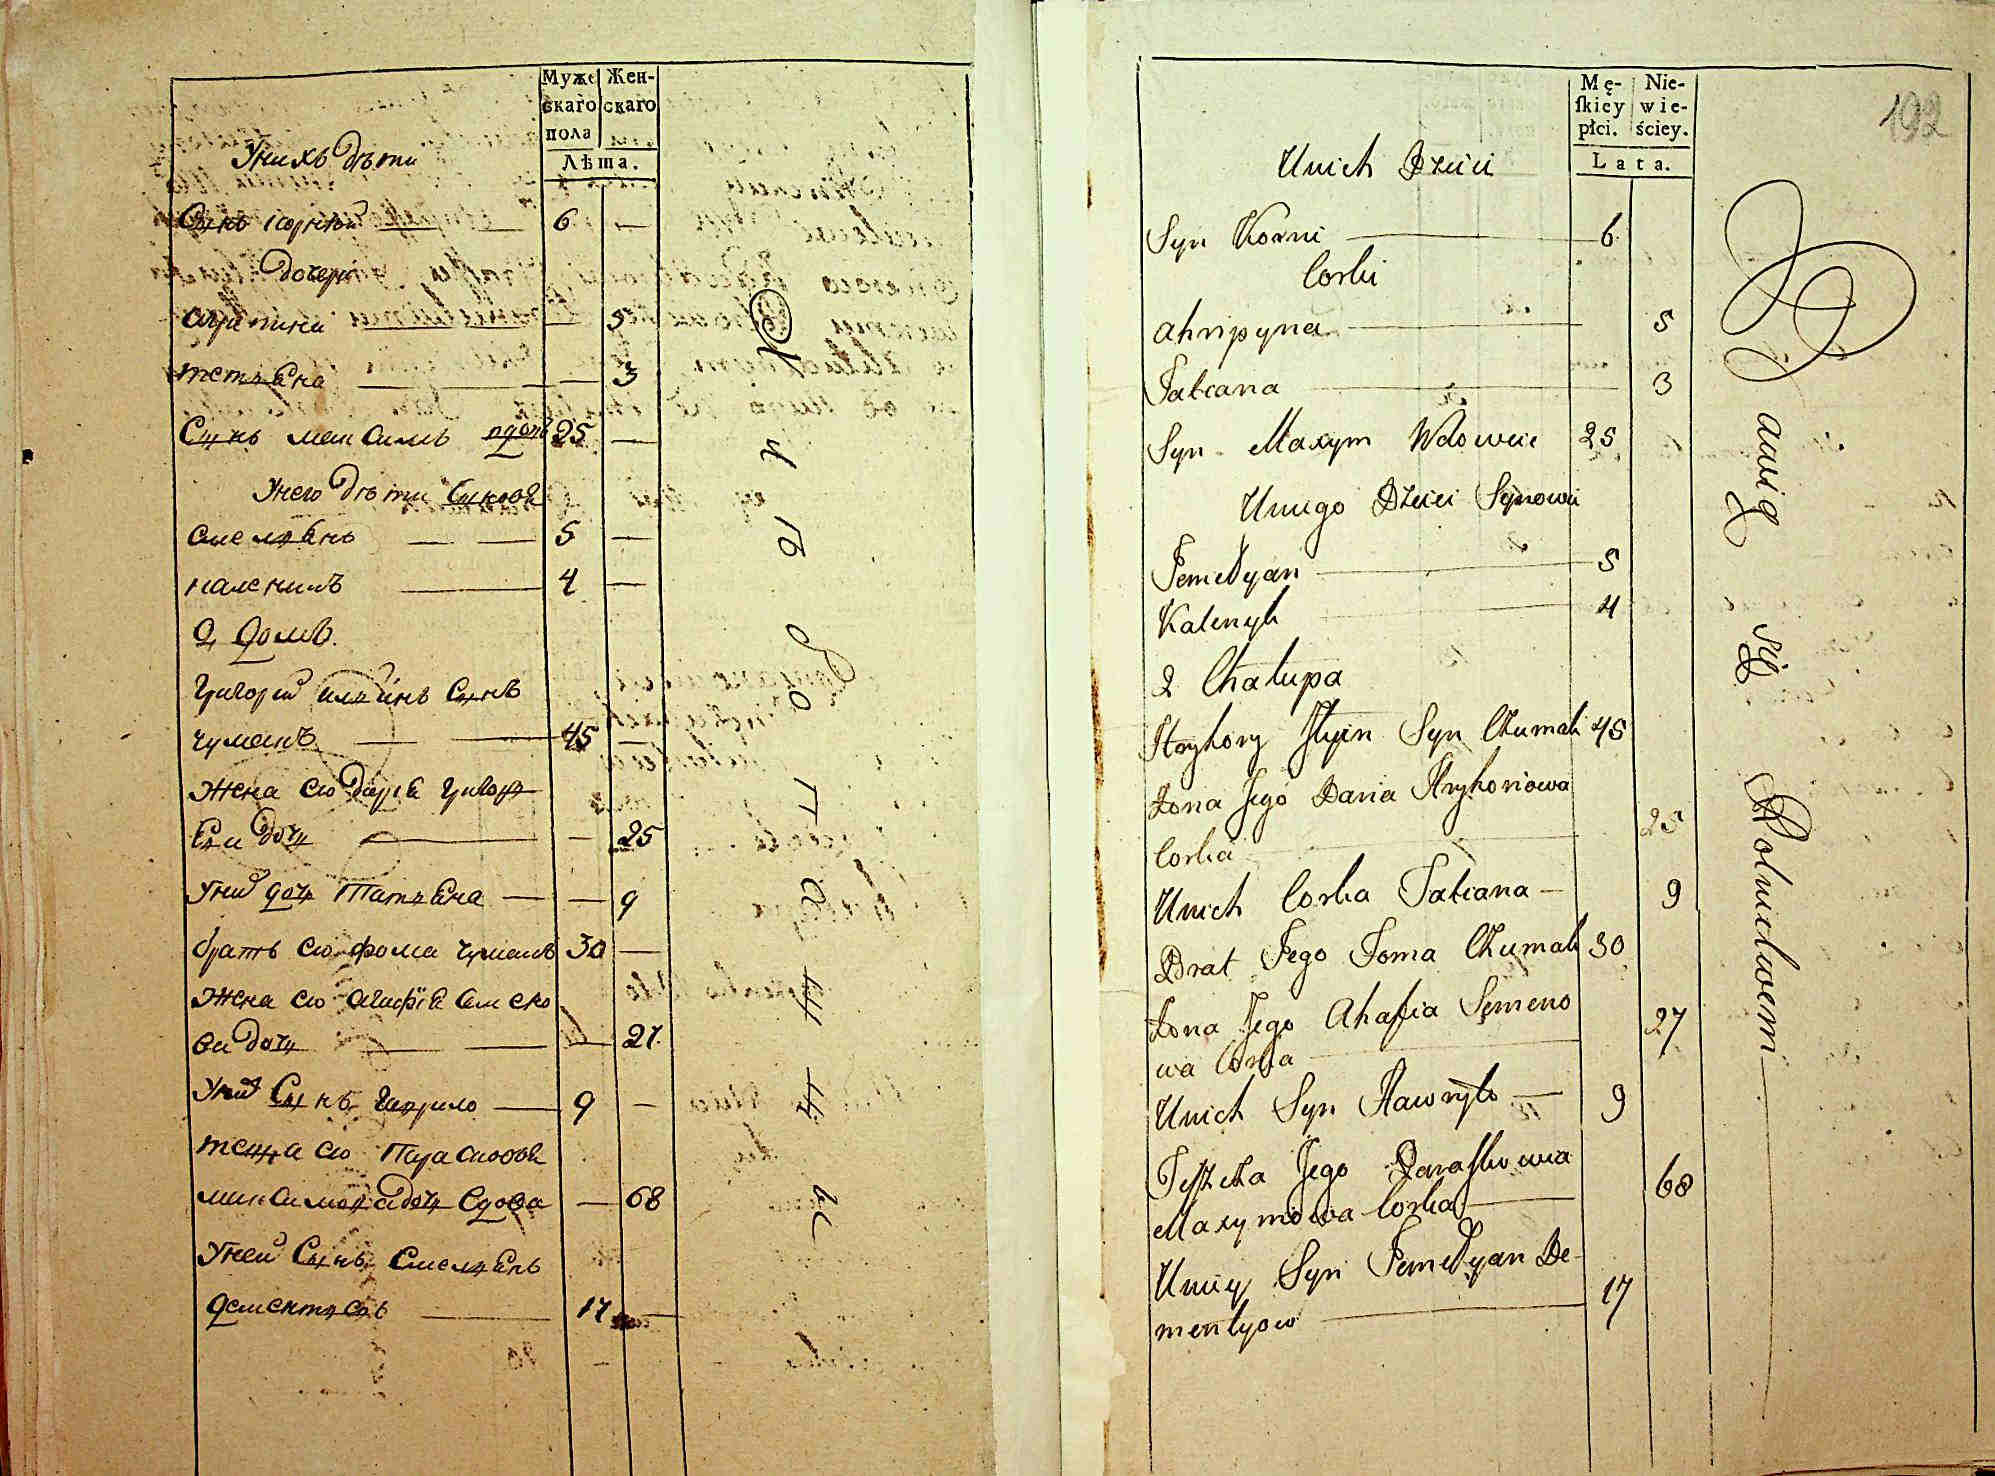 Муже
скаго
пола
Жен-
скаго
Лѣта.
У нихъ дѣти
Сынъ корнѣй 6 —
дочери
агрипина — 5
татьяна — 3
Сынъ максимъ вдовъ 25 —
У него дѣти Синовя
емельянъ 5 —
каленикъ 4 —
2 домъ.
Григорій ильинъ Сынъ
чумакъ 45 —
Жена его дарья Григорь
ева дочь — 25
У них дочь татьяна — — 9
братъ его фома чумакъ 30 —
Жена его агафія семено
ва дочь — 27.
У них Сынъ гаврило — 9 —
теща его парасковя
максимова дочь вдова — 68
У ней Сынъ Емельянъ
дементьевъ 17 —
Хлѣбопашны
Mę-
skiey
płci.
Nie-
wie-
ściey.
Lata.
192
Unich Dzieci
Syn Korni — 6
Corki
Ahripyna — 5
Tatiana — 3
Syn Maxym Wdowiec 25
Uniego Dzieci Synowie
Jemelyan — 5
Kalenyk — 4
2 Chałupa
Hryhory Jlyin Syn Czumak 45
Żona Jego Daria Hryhoriowa
Corka — 25
Unich Corka Tatiana — 9
Brat Jego Foma Czumak 30
Żona Jego Ahafia Semeno
wa Corka — 27
Unich Syn Hawryło — 9
Teszcza Jego Paraskowia
Maxymowa Corka — 68
Uniey Syn Jemelyan De-
mentyow — 17
Bawią się Rolnictwem